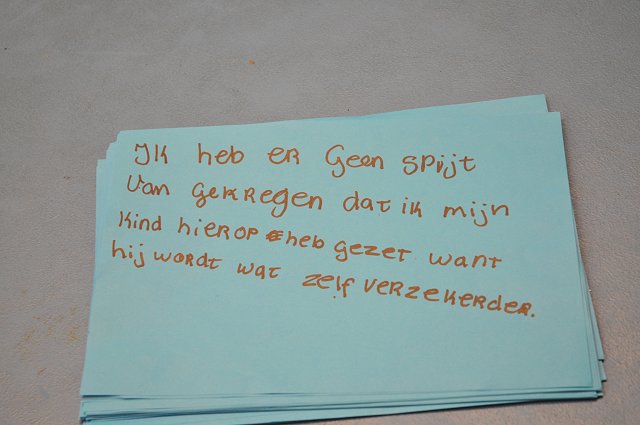 IK heb er Geen spijt
Van gekregen dat ik mijn
Kind hierop heb gezet want
hij wordt wat zelf verzekerder.